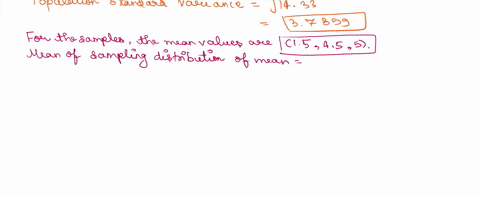 Population Standard Variance = √14.33
= 3.7859
For the samples, the mean values are (1.5, 4.5, 5).
Mean of sampling distribution of mean =